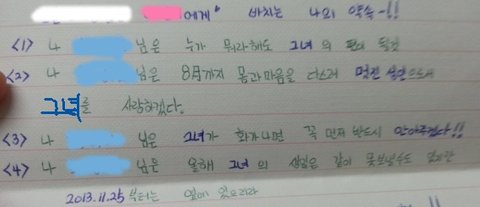 에게 바치는 나의 약속-!!
<1> 나 님은 누가 뭐라해도 그녀의 편이 될것
<2> 나 님은 8월까지 몸과마음을 다스려 멋진 성인으로서
그녀를 사랑하겠다.
<3> 나 님은 그녀가 화가나면 꼭 먼저 반드시 안아주겠다!!
<4> 나 님은 올해 그녀의 생일은 같이 못보낼수도 있지만
2013.11.25 부터는 옆에 있으리라